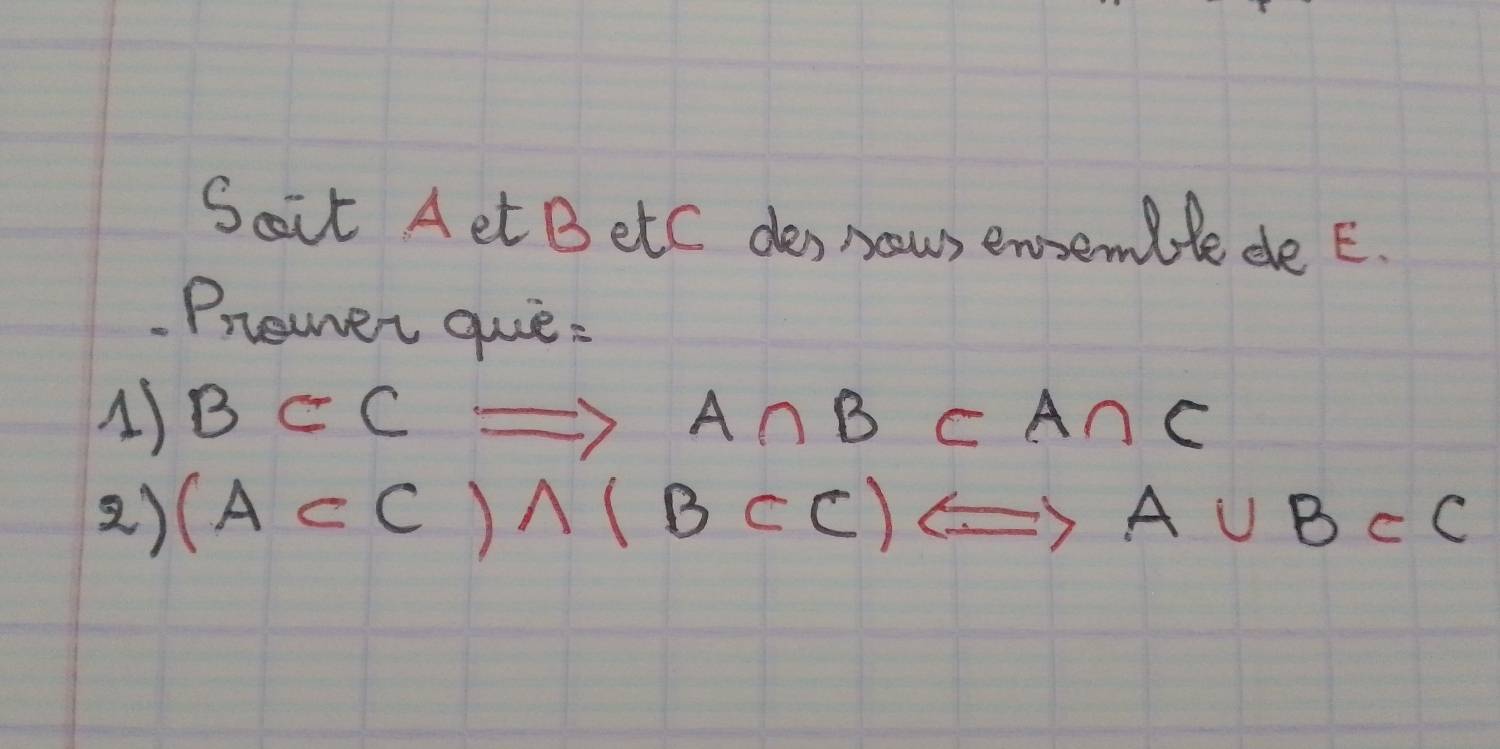 Soit A et B et C des sous ensemble de E.
- Prouver que :
1) B ⊂ C ⟹ A ∩ B ⊂ A ∩ C
2) (A ⊂ C) ∧ (B ⊂ C) ⟺ A ∪ B ⊂ C